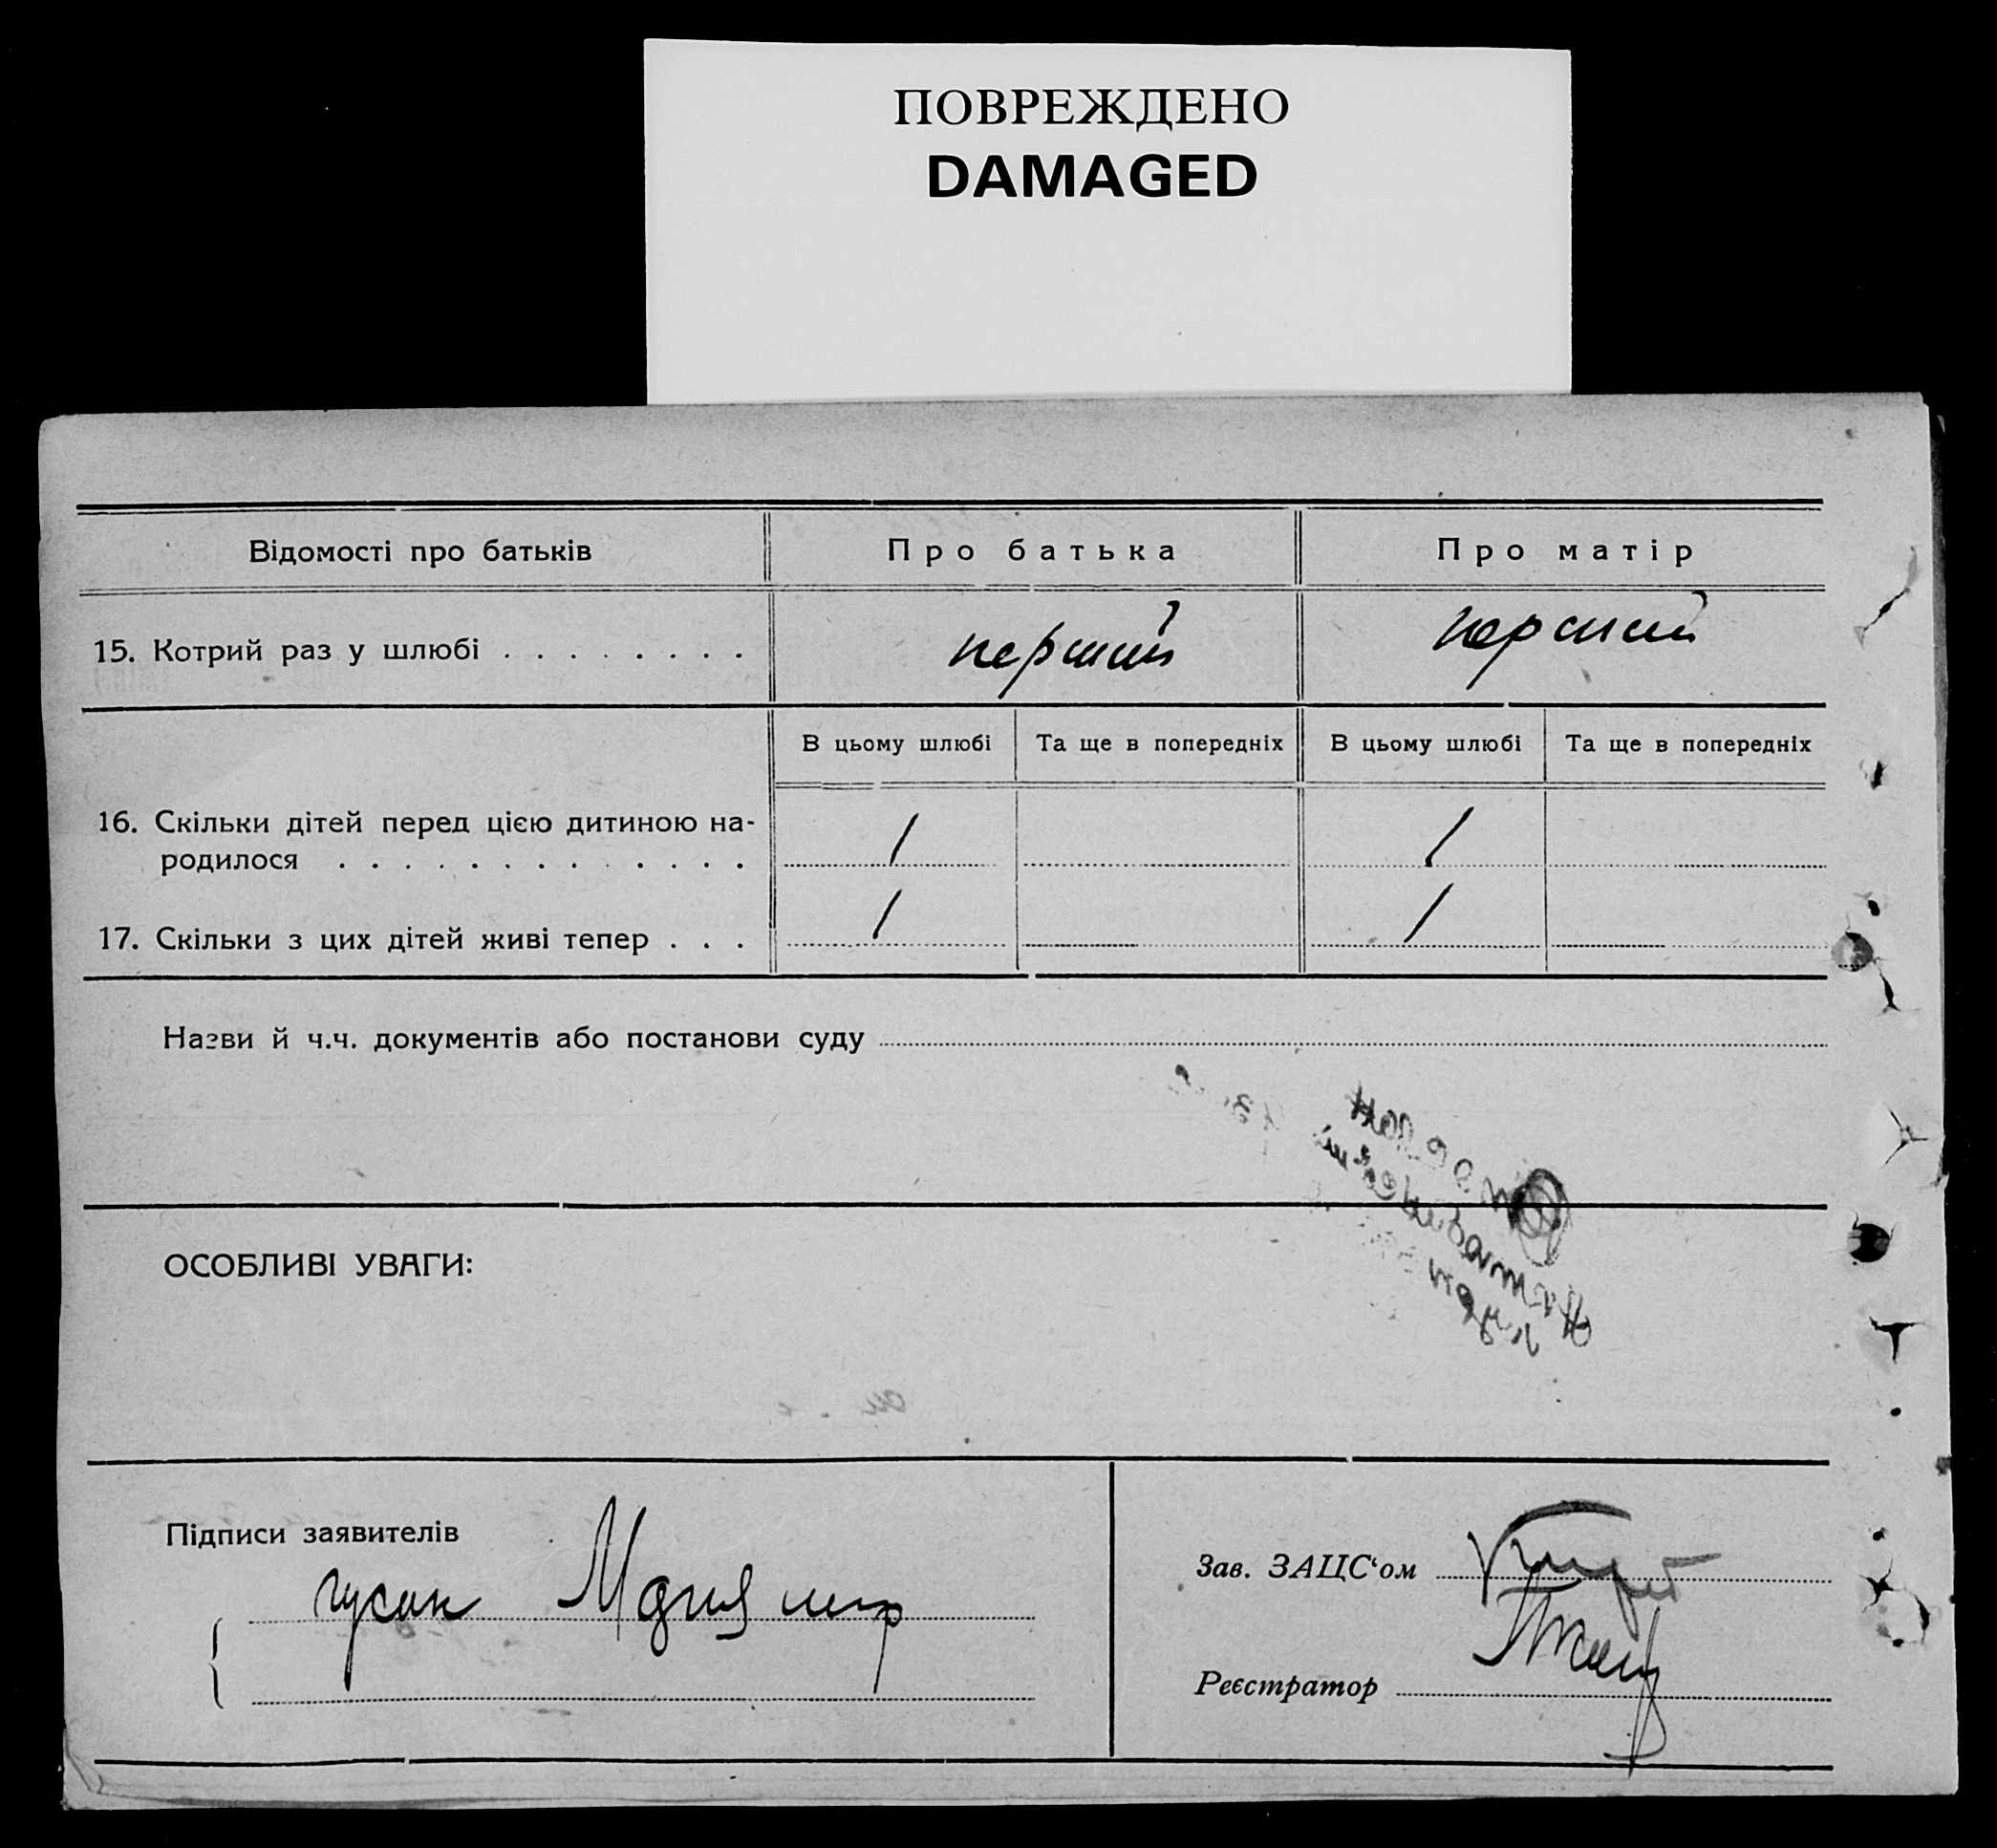 ПОВРЕЖДЕНО
DAMAGED
Відомості про батьків Про батька Про матір
15. Котрий раз у шлюбі . . . . . . . . перший перший
В цьому шлюбі Та ще в попередніх В цьому шлюбі Та ще в попередніх
16. Скільки дітей перед цією дитиною на-
родилося . . . . . . . . . . . . . 1 1
17. Скільки з цих дітей живі тепер . . . 1 1
Назви й ч.ч. документів або постанови суду
ОСОБЛИВІ УВАГИ:
Підписи заявителів
Зав. ЗАЦС‘ом
Реєстратор